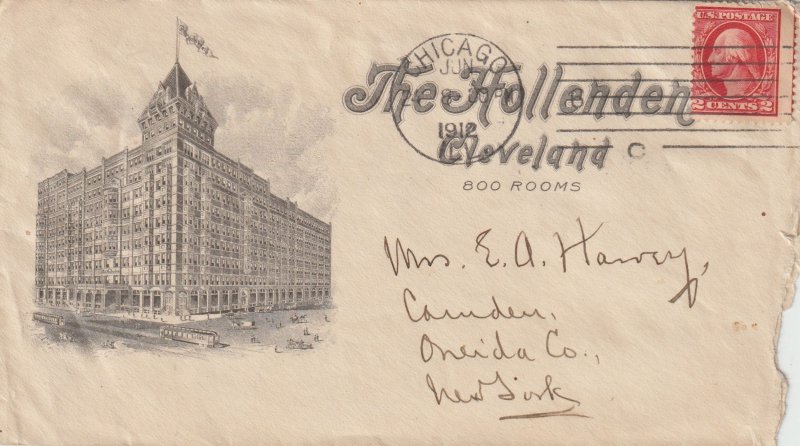 U.S. POSTAGE
2 CENTS 2
CHICAGO
JUN
1912
ILL
C
The Hollenden
Cleveland
800 ROOMS
Mrs. E. A. Harvey,
Camden,
Oneida Co.,
New York